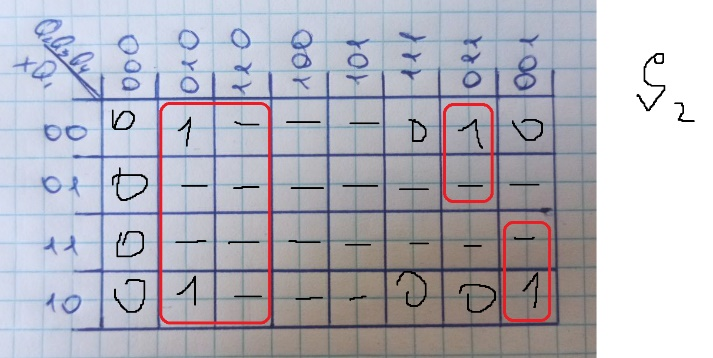 Q₂Q₃Q₄ 000 010 110 100 101 111 011 001
+Q₁
00 0 1 - - - 0 1 0
01 0 - - - - - - -
11 0 - - - - - - -
10 0 1 - - - 0 0 1